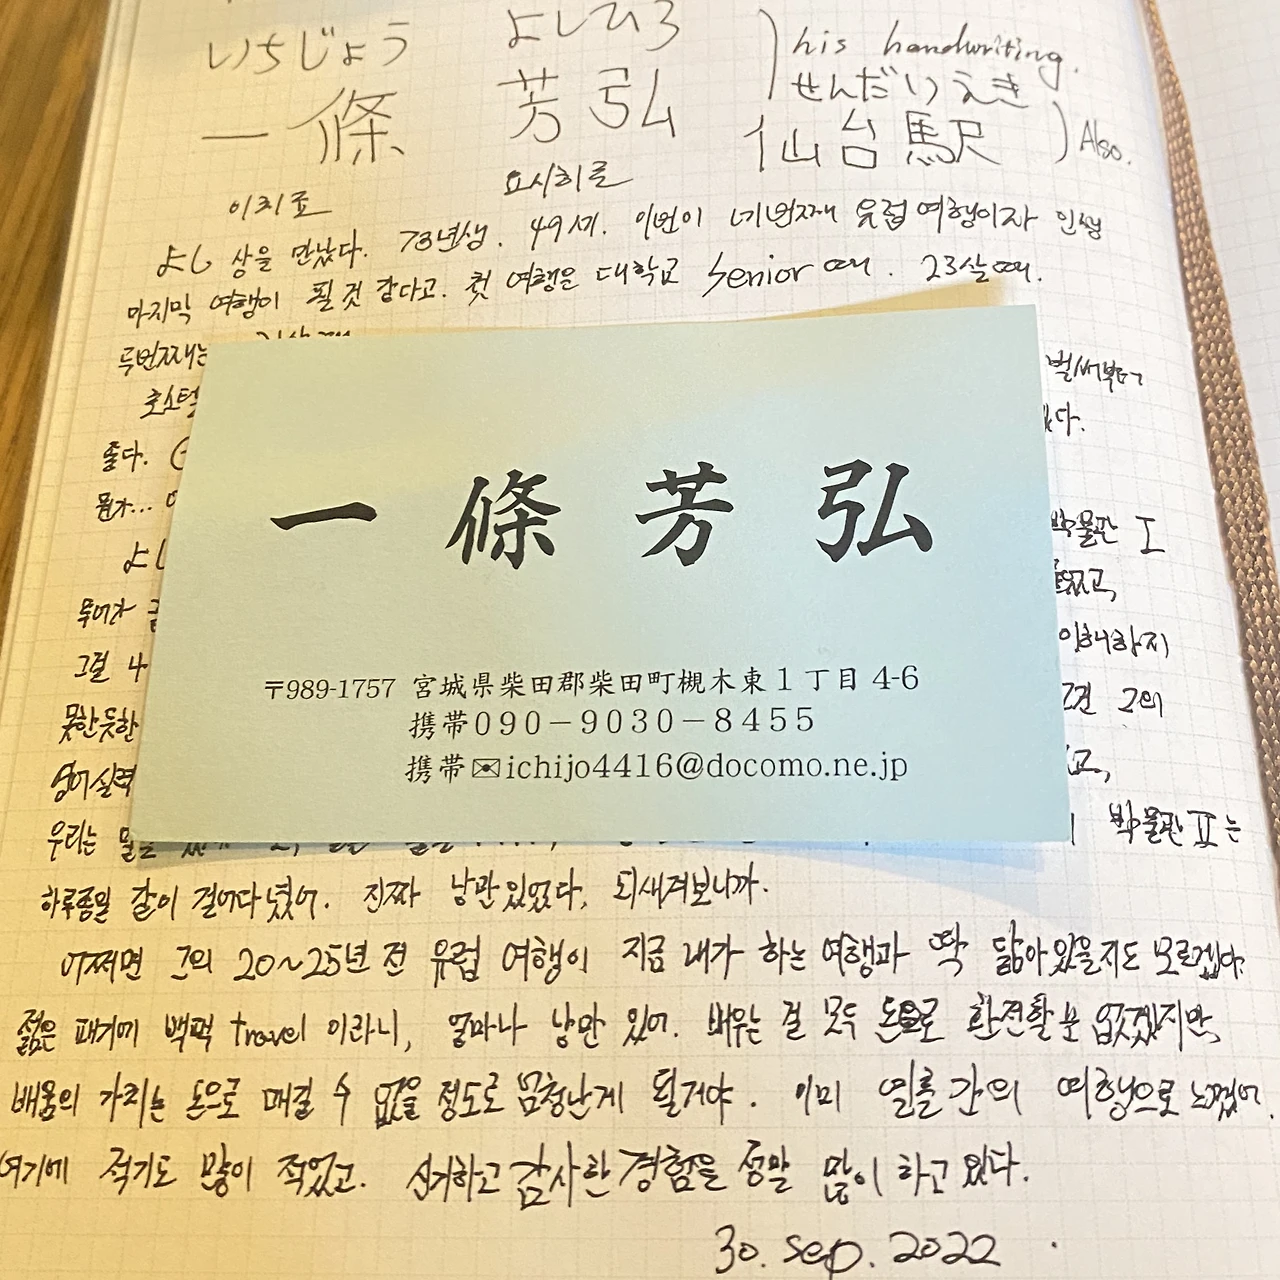 いちじょう よしひろ his handwriting.
せんだいえき
一條 芳弘 仙台駅 Also.
이치죠 요시히로
よし 상을 만났다. 73년생. 49세. 이번이 네번째 유럽여행이자 인생
마지막 여행이 될것 같다고. 첫 여행은 대학교 Senior 때. 23살때.
두번째는
벌써부터
호스텔
좋다.
뭔가...
一條芳弘
박물관 I
よし
무어가
그걸 나
이해하지
〒989-1757 宮城県柴田郡柴田町槻木東1丁目4-6
못한듯한 그의
携帯090-9030-8455
携帯✉ichijo4416@docomo.ne.jp
영어실력
우리는 박물관 II는
하루종일 같이 걸어다녔어. 진짜 낭만있었다, 되새겨보니까.
어쩌면 그의 20~25년 전 유럽 여행이 지금 내가 하는 여행과 딱 닮아있을지도 모르겠다.
젊은 패기에 백팩 travel 이라니, 얼마나 낭만 있어. 배우는 걸 모두 돈으로 환전할 순 없겠지만,
배움의 가치는 돈으로 매길 수 없을 정도로 엄청난게 될거야. 이미 열흘간의 여행으로 느꼈어.
여기에 적기도 많이 적었고. 신기하고 감사한 경험을 정말 많이 하고 있다.
30. sep. 2022